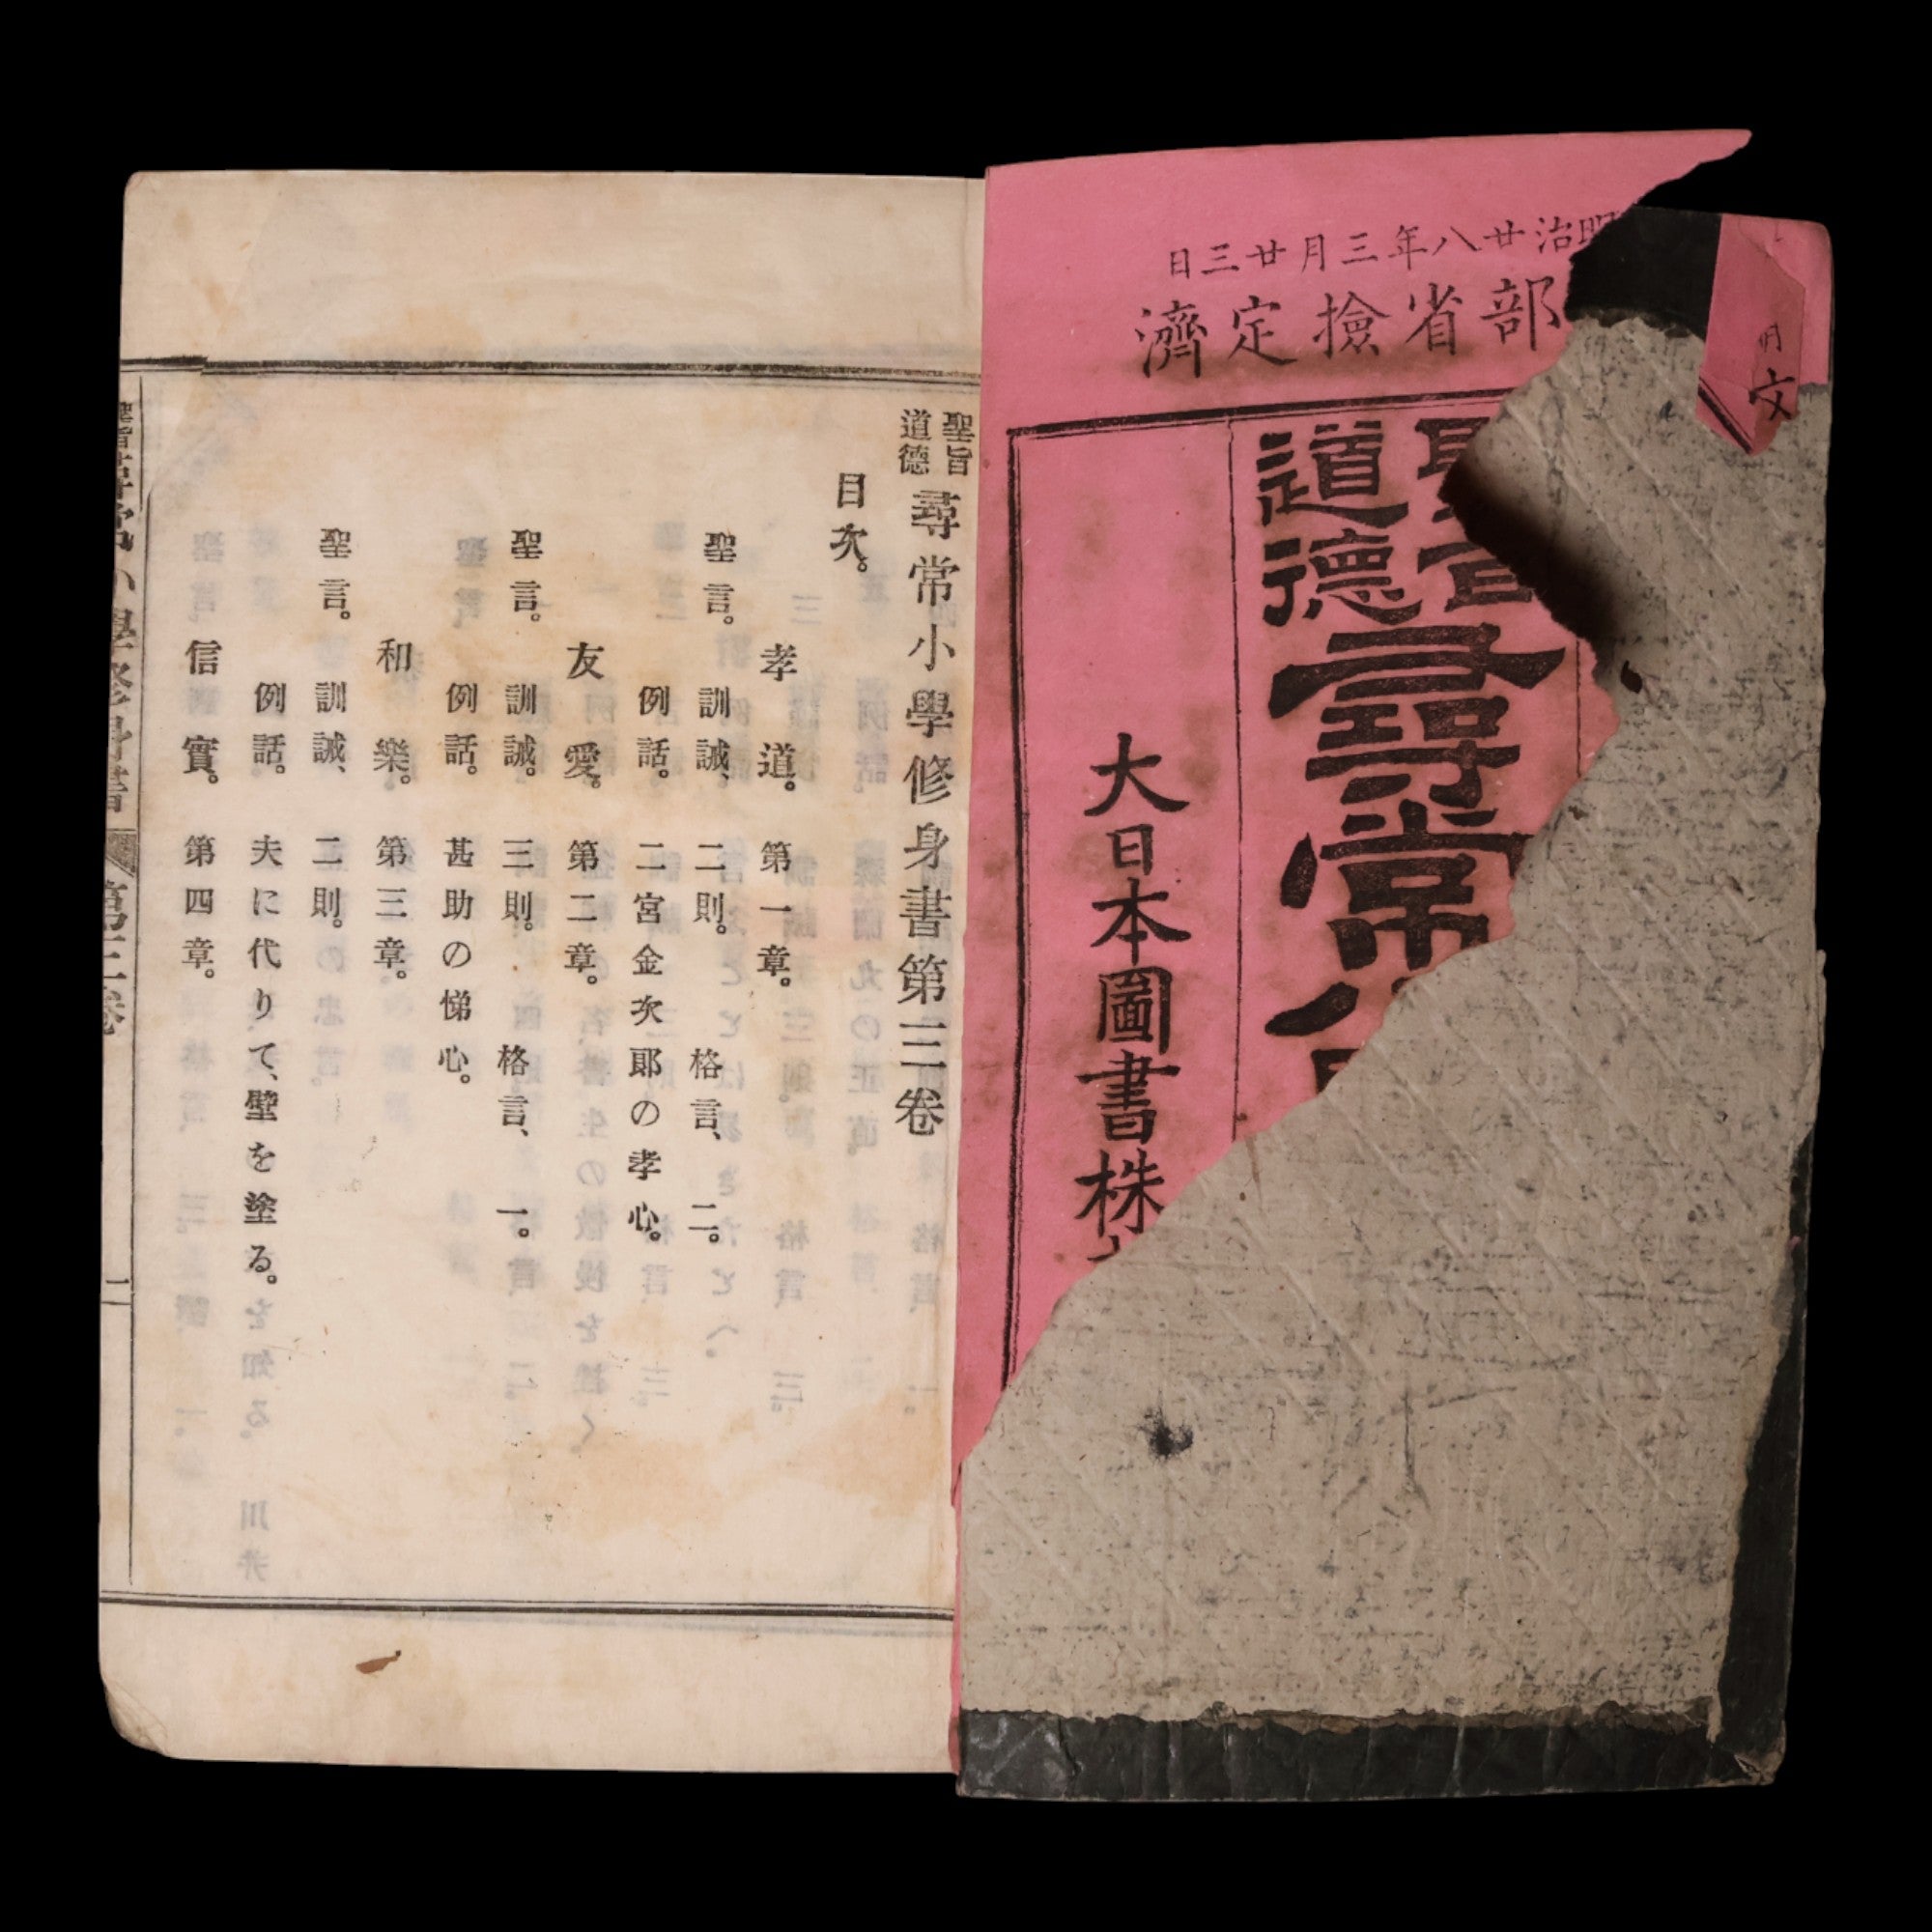 明治廿八年三月廿三日
文部省撿定濟
聖旨
道德
尋常
大日本圖書株
聖旨
道德
尋常小學修身書第三卷
目次。
孝道。 第一章。
聖言。 訓誡、二則。 格言、二。
例話。 二宮金次郞の孝心。
友愛。 第二章。
聖言。 訓誡。 三則。 格言、一。
例話。 甚助の悌心。
和樂。 第三章。
聖言。 訓誡、二則。
例話。 夫に代りて、壁を塗る。
信實。 第四章。
尋常小學修身書 第三卷 一